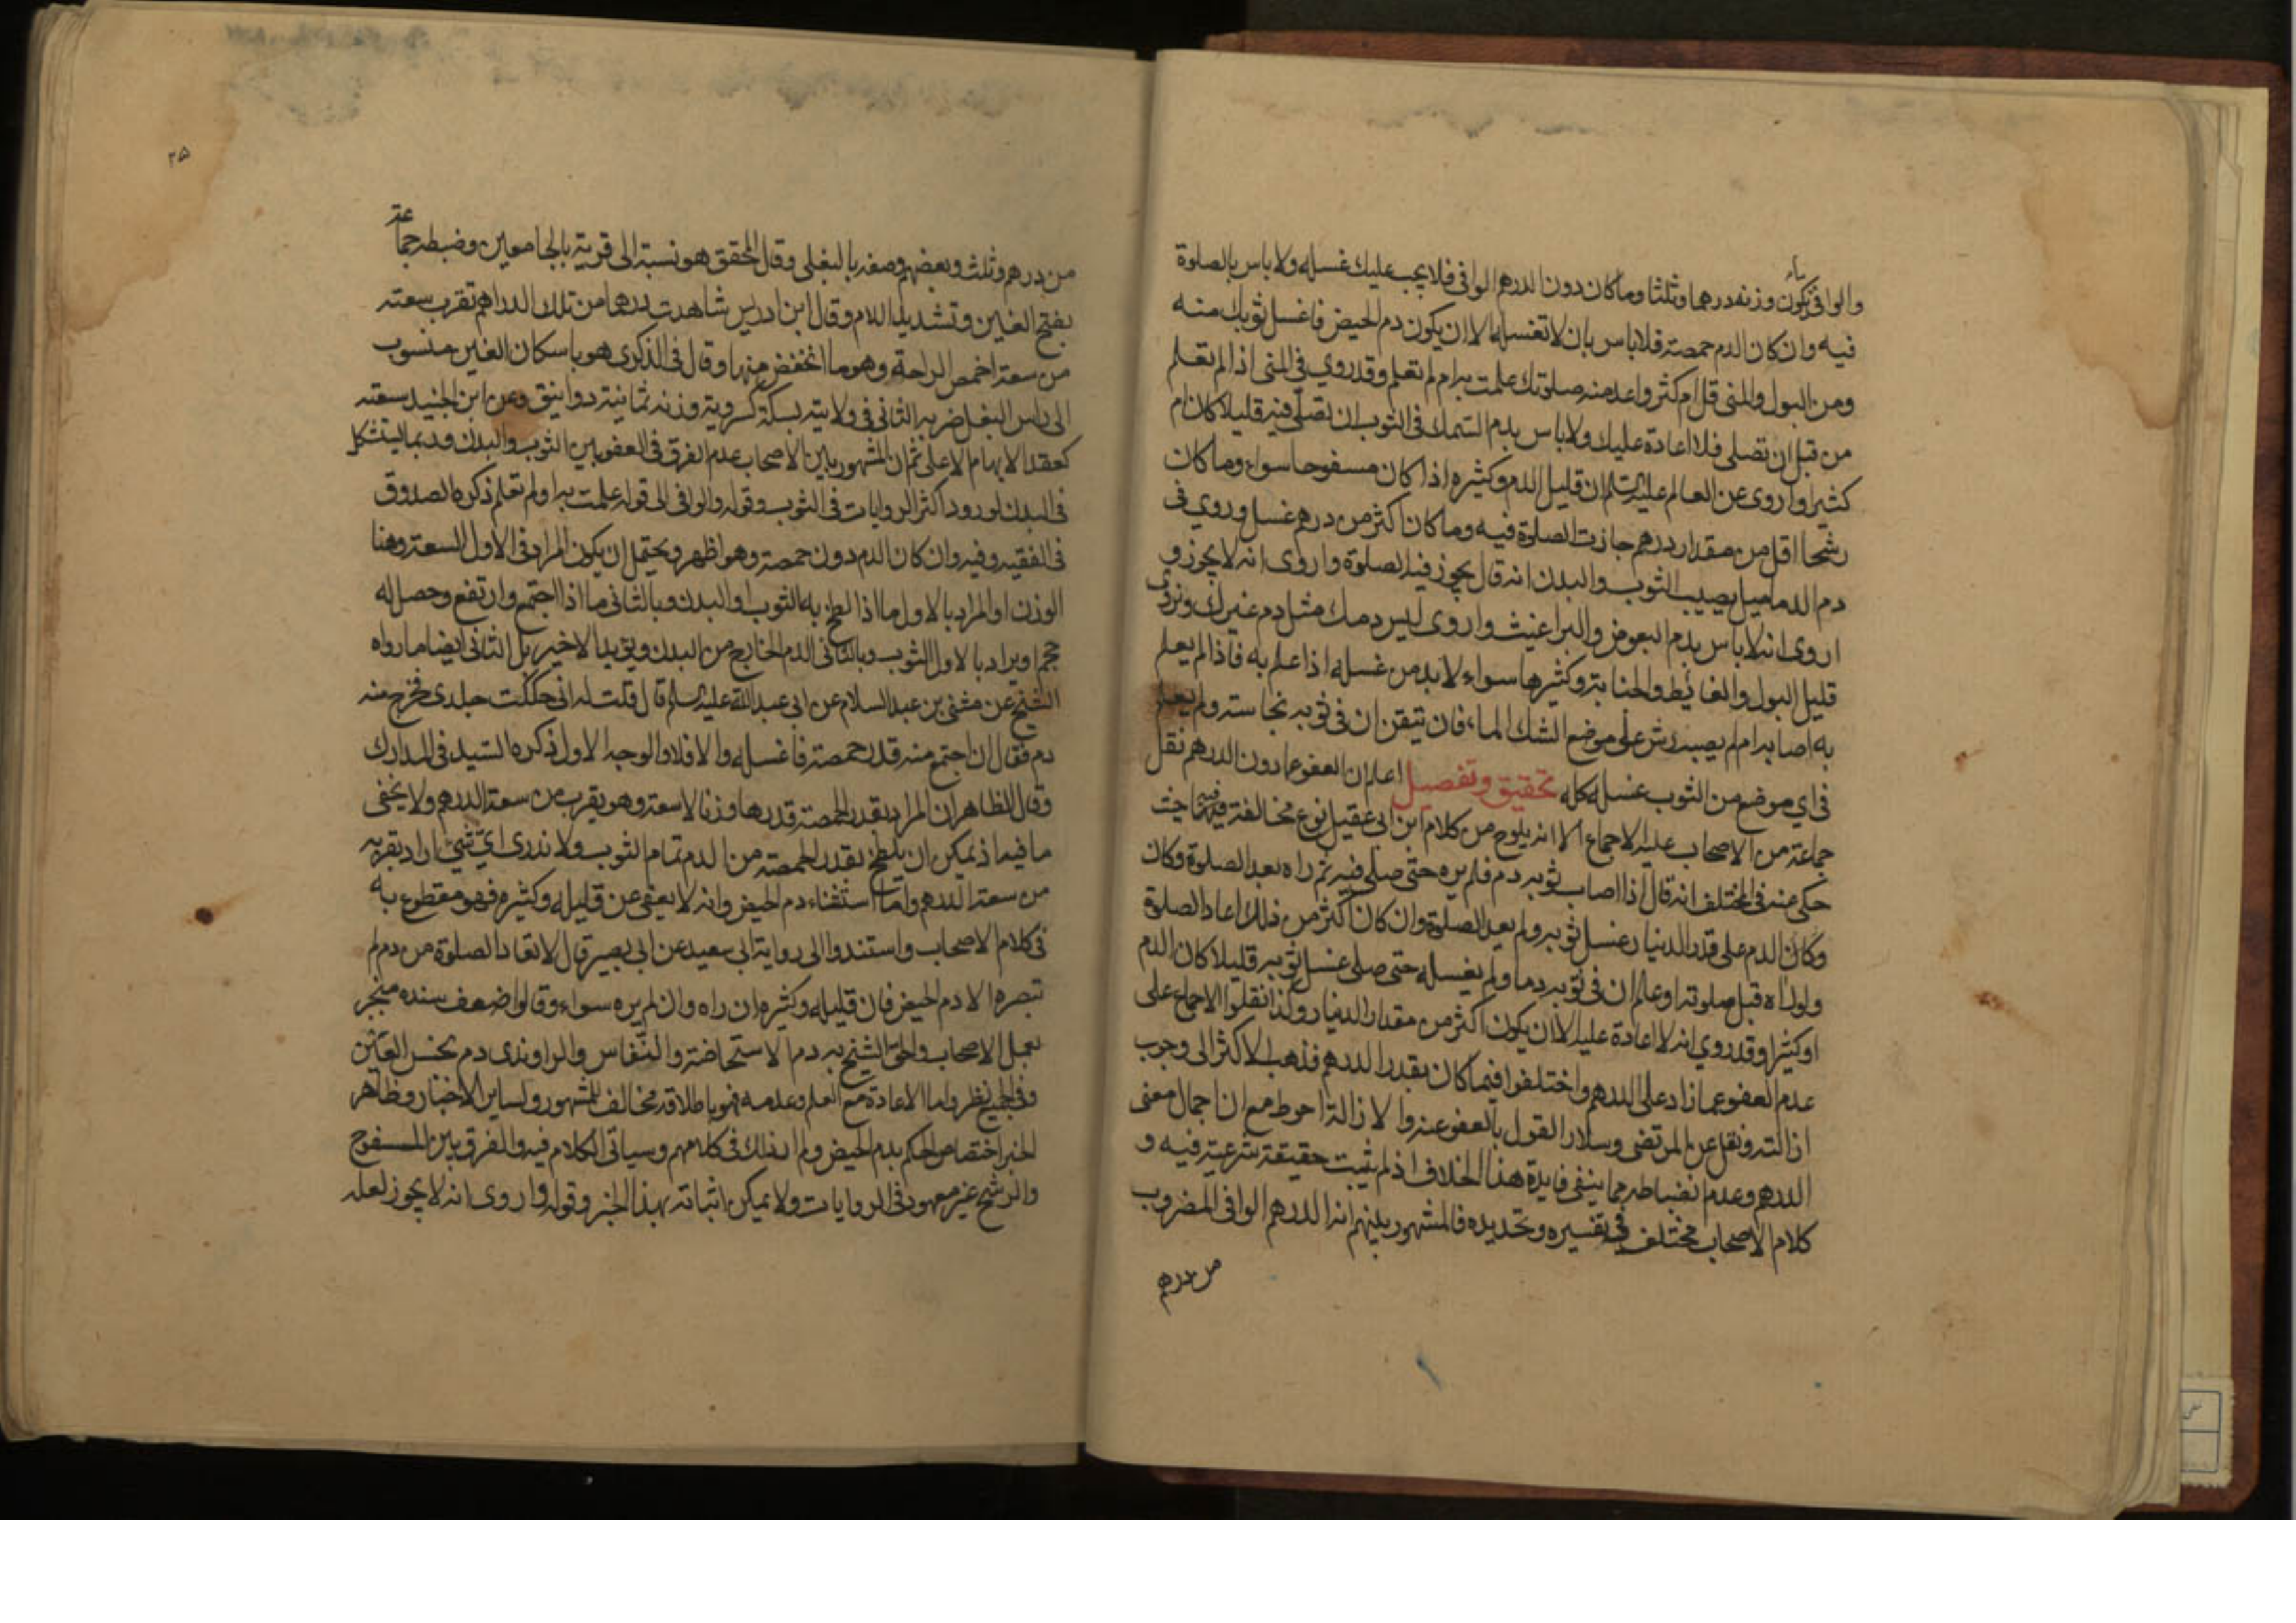 والوافي ما يكون وزنه درهما وثلثا وما كان دون الدرهم الوافي فلا يجب عليك غسله ولا باس بالصلوة
فيه وان كان الدم حمصة فلا باس بان لا تغسله الا ان يكون دم الحيض فاغسل ثوبك منه
ومن البول والمني قل ام كثر واعد منه صلوتك علمت به ام لم تعلم وقد روي في المني اذا لم تعلم
من قبل ان تصلي فلا اعادة عليك ولا باس بدم السمك في الثوب ان تصلي فيه قليلا كان ام
كثيرا واروى عن العالم عليه السلم ان قليل الدم وكثيره اذا كان مسفوحا سواء وما كان
رشحا اقل من مقدار درهم جازت الصلوة فيه وما كان اكثر من درهم غسل وروي في
دم الدماميل يصيب الثوب والبدن انه قال يجوز فيه الصلوة واروى انه لا يجوز و
اروى انه لا باس بدم البعوض والبراغيث واروى ليس دمك مثل دم غيرك ونروي
قليل البول والغائط والجنابة وكثيرها سواء لا بد من غسله اذا علم به فاذا لم يعلم
به اصابه ام لم يصبه رش على موضع الشك الماء فان تيقن ان في ثوبه نجاسته ولم يعلم
في اي موضع من الثوب غسله كله تحقيق وتفصيل اعلم ان العفو عما دون الدرهم نقل
جماعة من الاصحاب عليه الاجماع الا انه يلوح من كلام ابن ابي عقيل نوع مخالفة فيه حيث
حكي عنه في المختلف انه قال اذا اصاب ثوبه دم فلم يره حتى صلى فيه ثم راه بعد الصلوة وكان
وكان الدم على قدر الدينار غسل ثوبه ولم يعد الصلوة وان كان اكثر من ذلك اعاد الصلوة
ولو راه قبل صلوته او علم ان في ثوبه دما ولم يغسله حتى صلى غسل ثوبه قليلا كان الدم
او كثيرا وقد روي انه لا اعادة عليه الا ان يكون اكثر من مقدار الدينار وكذا نقلوا الاجماع على
عدم العفو عما زاد على الدرهم واختلفوا فيما كان بقدر الدرهم فذهب الاكثر الى وجوب
ازالته ونقل عن المرتضى وسلار القول بالعفو عنه والازالة احوط مع ان اجمال معنى
الدرهم وعدم انضباطه مما ينفي فايدة هذا الخلاف اذ لم يثبت حقيقة شرعية فيه و
كلام الاصحاب مختلف في تفسيره وتحديده فالمشهور بينهم انه الدرهم الوافي المضروب
من درهم
٢۵
من درهم وثلث وبعضهم وصفه بالبغلي وقال المحقق هو نسبة الى قرية بالجامعين وضبطه جماعة
بفتح الغين وتشديد اللام وقال ابن ادريس شاهدت درهما من تلك الدراهم تقرب سعته
من سعة اخمص الراحة وهو ما انخفض منها وقال في الذكرى هو باسكان الغين منسوب
الى راس البغل ضربه الثاني في ولايته بسكة كسروية وزنه ثمانية دوانيق وعن ابن الجنيد سعته
كعقد الابهام الاعلى ثم ان المشهور بين الاصحاب عدم الفرق في العفو بين الثوب والبدن وربما يستشكل
في البدن لورود اكثر الروايات في الثوب وقوله والوافي الى قوله علمت به او لم تعلم ذكره الصدوق
في الفقيه وفيه وان كان الدم دون حمصة وهو اظهر ويحتمل ان يكون المراد في الاول السعة وهنا
الوزن او المراد بالاول ما اذا لطخ به الثوب او البدن وبالثاني ما اذا اجتمع وارتفع وحصل له
حجم او يراد بالاول الثوب وبالثاني الدم الخارج من البدن ويؤيد الاخير بل الثاني ايضا ما رواه
الشيخ عن مثنى بن عبد السلام عن ابي عبد الله عليه السلم قال قلت له اني حككت جلدي فخرج منه
دم فقال ان اجتمع منه قدر حمصة فاغسله والا فلا والوجه الاول ذكره السيد في المدارك
وقال الظاهر ان المراد بقدر الحمصة قدرها وزنا لا سعة وهو يقرب من سعة الدرهم ولا يخفى
ما فيه اذ يمكن ان يلطخ بقدر الحمصة من الدم تمام الثوب ولا ندري اي شيء اراد بقربه
من سعة الدرهم واما استثناء دم الحيض وانه لا يعفى عن قليله وكثيره فهو مقطوع به
في كلام الاصحاب واستندوا الى رواية ابي سعيد عن ابي بصير قال لا تعاد الصلوة من دم لم
تبصره الا دم الحيض فان قليله وكثيره ان راه وان لم يره سواء وقالوا ضعف سنده منجبر
بعمل الاصحاب والحق الشيخ به دم الاستحاضة والنفاس والراوندي دم نجس العين
وفي الجميع نظر واما الاعادة مع العلم وعدمه فهو باطلاقه مخالف للمشهور ولساير الاخبار وظاهر
الخبر اختصاص الحكم بدم الحيض ولم ار ذلك في كلامهم وسياتي الكلام فيه والفرق بين المسفوح
والرشح غير معهود في الروايات ولا يمكن اثباته بهذا الخبر وقوله واروى انه لا يجوز لعله